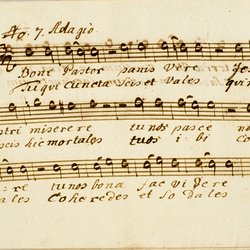 No. 7. Adagio.
Bone Pastor panis Vere Je
Tu qui Cuncta Scis et Vales qui n
stri miserere tu nos pasce n
scis hic mortales tuos i bi c
re tu nos bona fac vi dere
ales Cohæredes et So dales